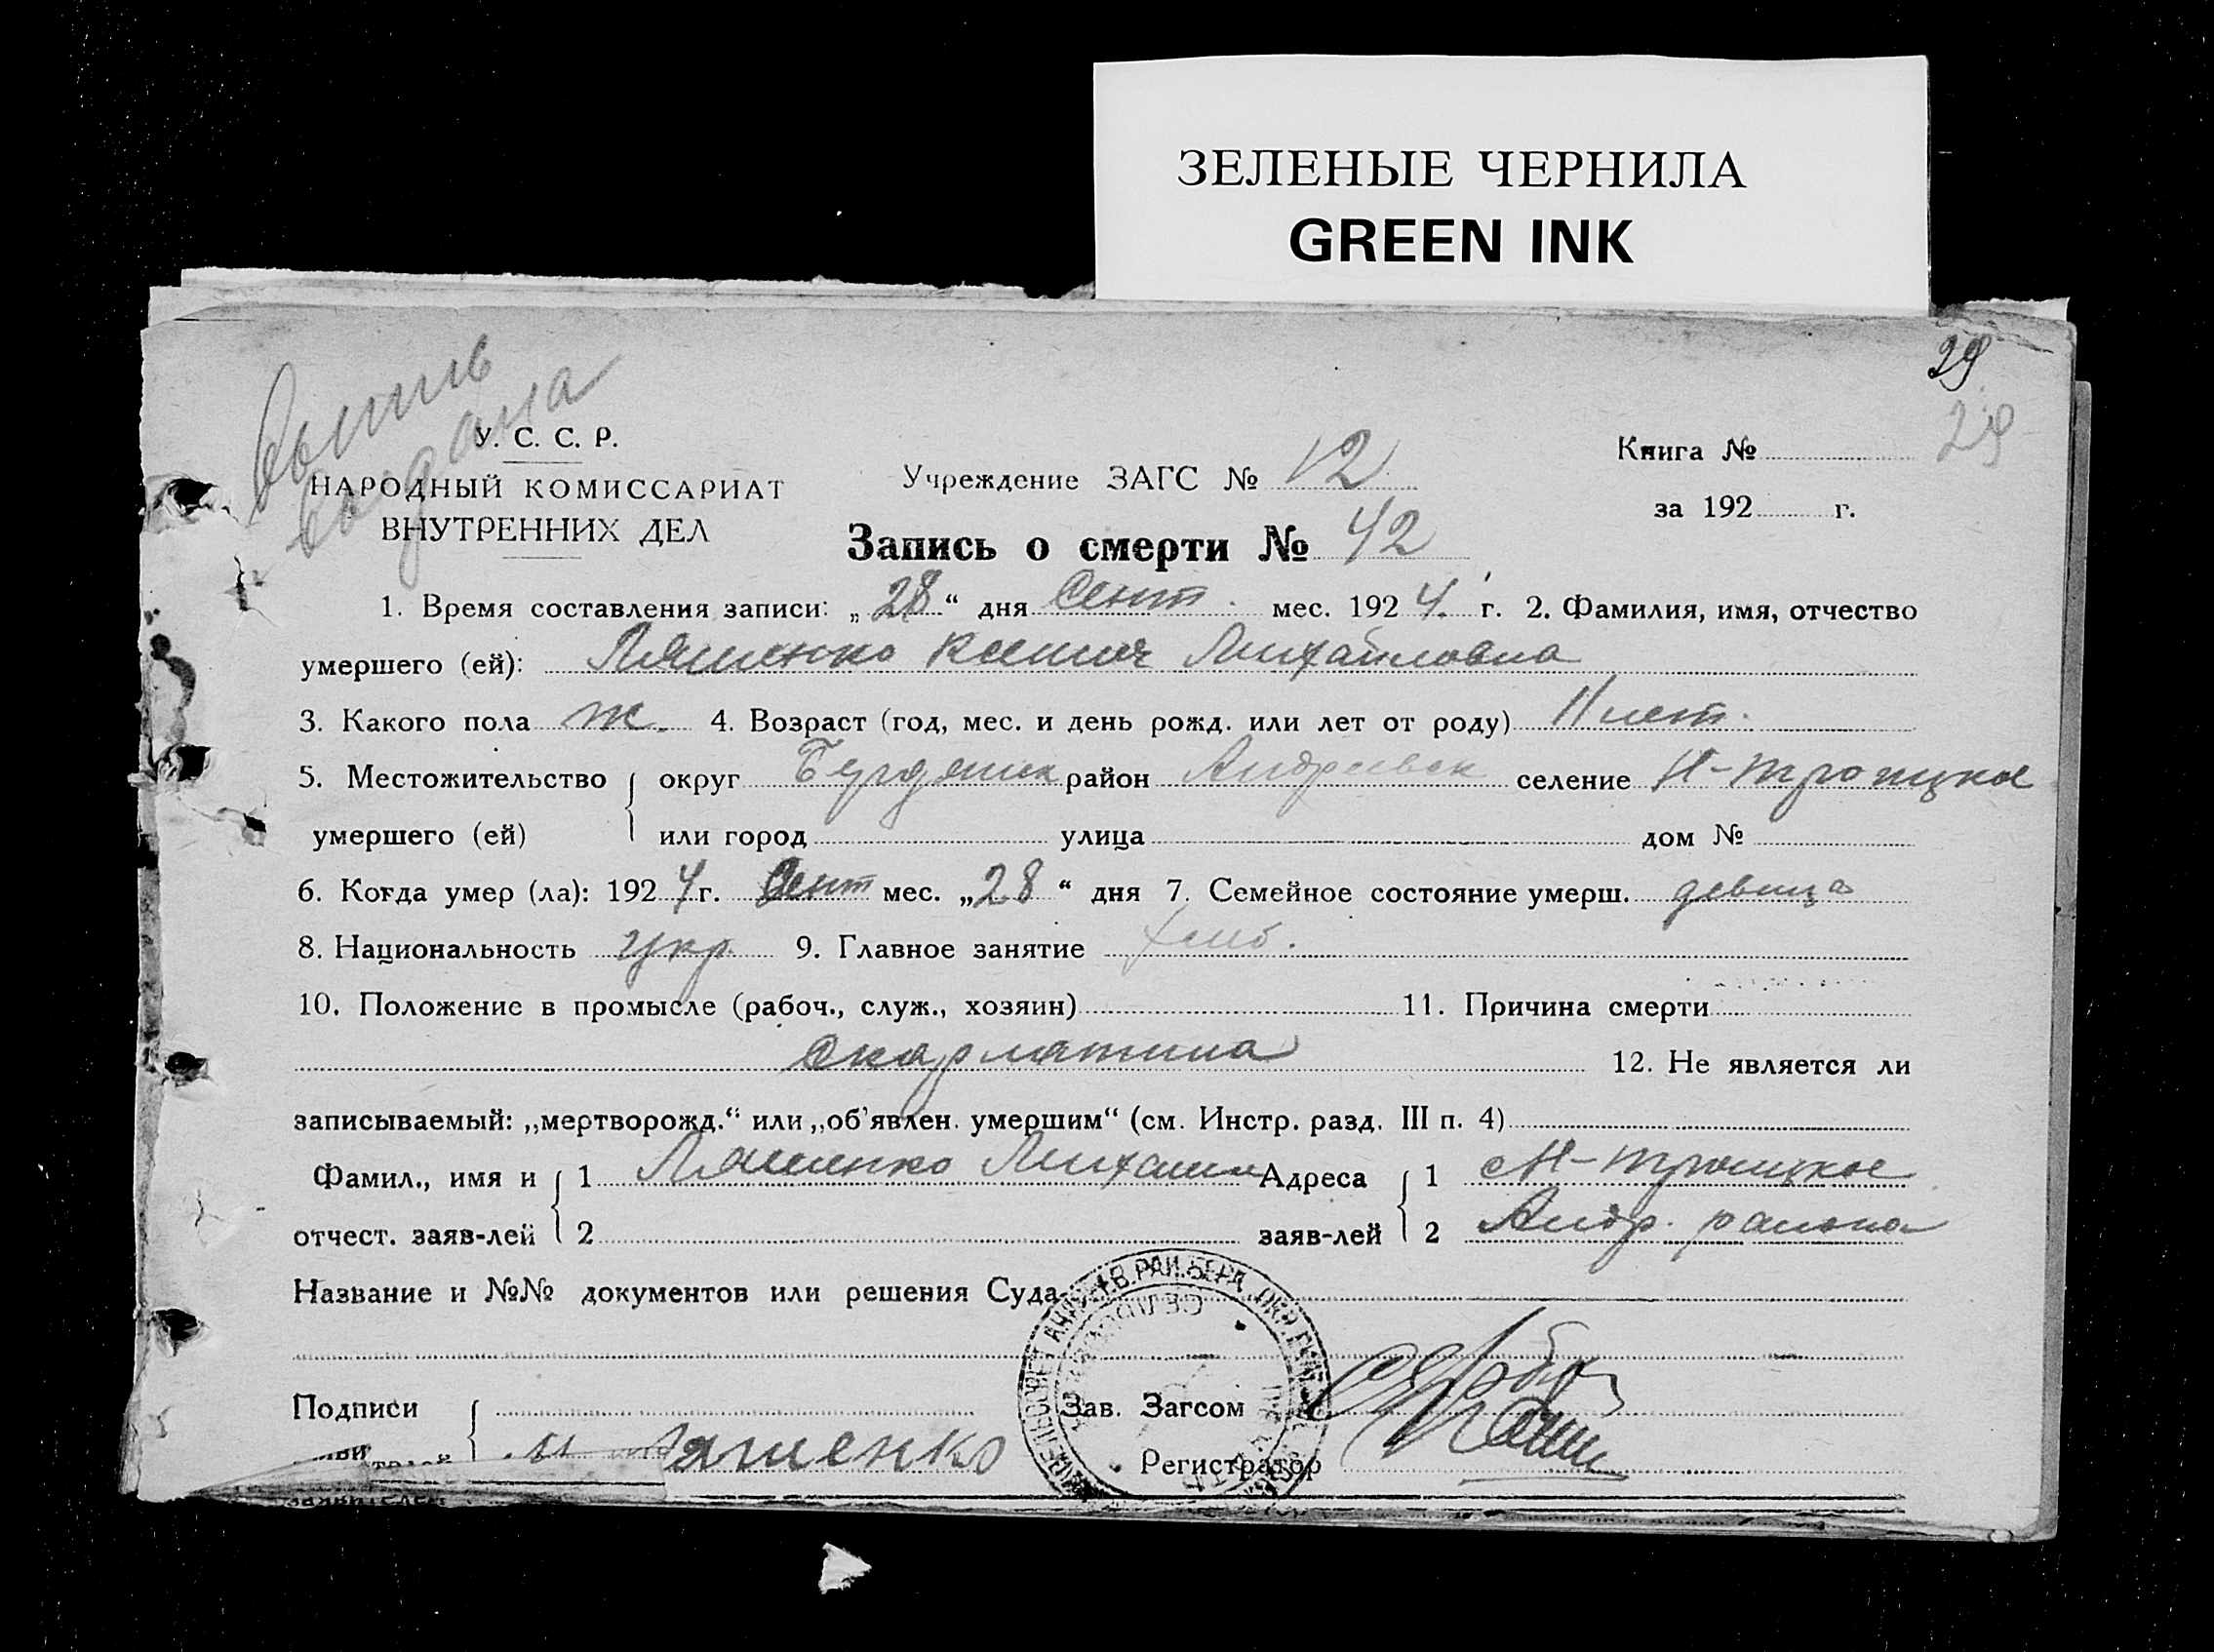 ЗЕЛЕНЫЕ ЧЕРНИЛА
GREEN INK
29
29
выпись
выдана
У. С. С. Р.
НАРОДНЫЙ КОМИССАРИАТ
ВНУТРЕННИХ ДЕЛ
Учреждение ЗАГС № 12
Книга №
за 192 г.
Запись о смерти № 42
1. Время составления записи: „28“ дня Сент. мес. 1924 г. 2. Фамилия, имя, отчество
умершего (ей): Ляшенко Ксения Михайловна
3. Какого пола ж. 4. Возраст (год, мес. и день рожд. или лет от роду) 11 лет.
5. Местожительство округ Бердянск район Андреевск селение Н-Троицкое
умершего (ей) или город улица дом №
6. Когда умер (ла): 1924 г. Сент мес. „28“ дня 7. Семейное состояние умерш. девица
8. Национальность укр. 9. Главное занятие хлеб.
10. Положение в промысле (рабоч., служ., хозяин) 11. Причина смерти
скарлатина 12. Не является ли
записываемый: „мертворожд.“ или „об'явлен. умершим“ (см. Инстр. разд. III п. 4)
Фамил., имя и 1 Ляшенко Михаил Адреса 1 Н-Троицкое
отчест. заяв-лей 2 заяв-лей 2 Андр. района
Название и №№ документов или решения Суда
Подписи Зав. Загсом
М Ляшенко Регистратор